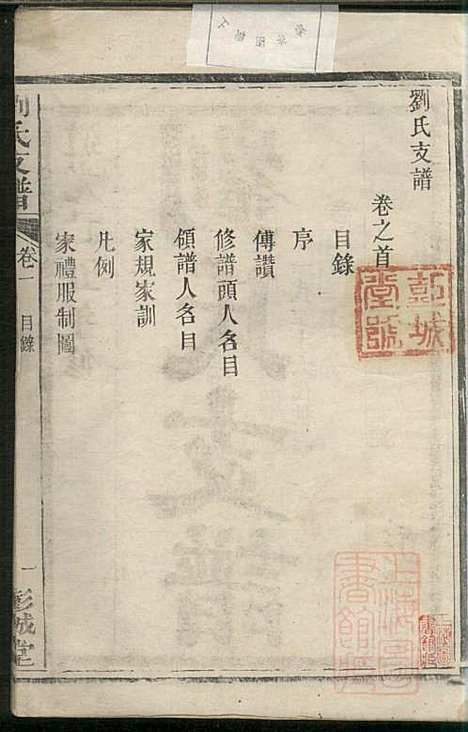 劉氏支譜
卷之首
目錄
序
傳讚
修譜頭人名目
領譜人名目
家規家訓
凡例
家禮服制圖
劉氏支譜
卷一
目錄
一
彭城堂
彭城堂號
上海圖書館藏